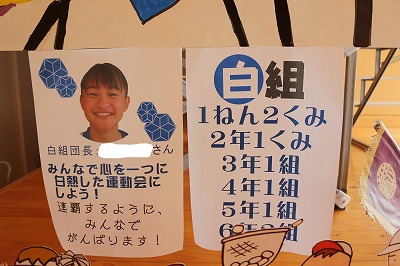 白組団長 さん
みんなで心を一つに
白熱した運動会に
しよう！
連覇するように、
みんなで
がんばります！
白組
1ねん2くみ
2年1くみ
3年1組
4年1組
5年1組